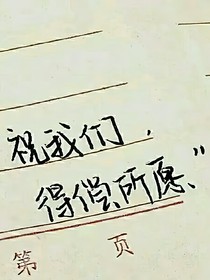 祝我们，
得偿所愿”
第 页